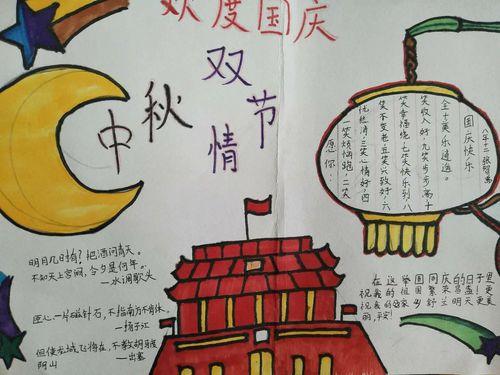 欢度国庆
双节
中秋
情
八年十二 张智
国庆快乐
全十美乐逍遥。
笑收入好,九笑步步高十
笑幸福绕,七笑快乐到,八
笑不变老五笑兴致好,六
忧愁消,三笑心情好,四
一笑烦恼跑,二笑
愿你:
明月几时有?把酒问青天。
不知天上宫阙,今夕是何年。
—水调歌头
臣心一片磁针石,不指南方不肯休。
—扬子江
但使龙城飞将在,不教胡马度
阴山 —出塞
在这举国同庆的日子里
祝我的祖国繁荣昌盛!更
祝我的家乡舒兰明天更美
丽,平安!